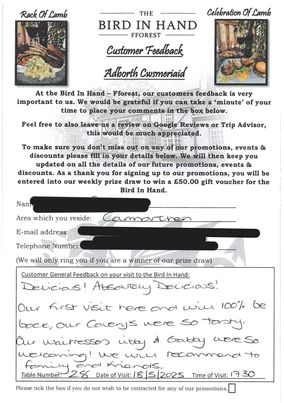 Rack Of Lamb
Celebration Of Lamb
THE
BIRD IN HAND
FFOREST
Customer Feedback
Adborth Cwsmeriaid
At the Bird In Hand – Fforest, our customers feedback is very
important to us. We would be grateful if you can take a ‘minute’ of your
time to place your comments in the box below.
Feel free to also leave us a review on Google Reviews or Trip Advisor,
this would be much appreciated.
To make sure you don't miss out on any of our promotions, events &
discounts please fill in your details below. We will then keep you
updated on all the details of our future promotions, events &
discounts. As a thank you for signing up to our promotions, you will be
entered into our weekly prize draw to win a £50.00 gift voucher for the
Bird In Hand.
Area which you reside: Carmarthen
E-mail address:
Telephone Number
(We will only ring if you are a winner of our prize draw)
Customer General Feedback on your visit to the Bird In Hand:
Delicious! Absolutely Delicious!
Our first visit here and will 100% be
back, our Cavery's were so tasty.
Our waitresses Libby & Gabby were so
welcoming! We will recommend to
family and friends.
Table Number: 28 Date of Visit: 18/5/2025 Time of Visit: 17.30
Please tick the box if you do not wish to be contacted for any of our promotions.